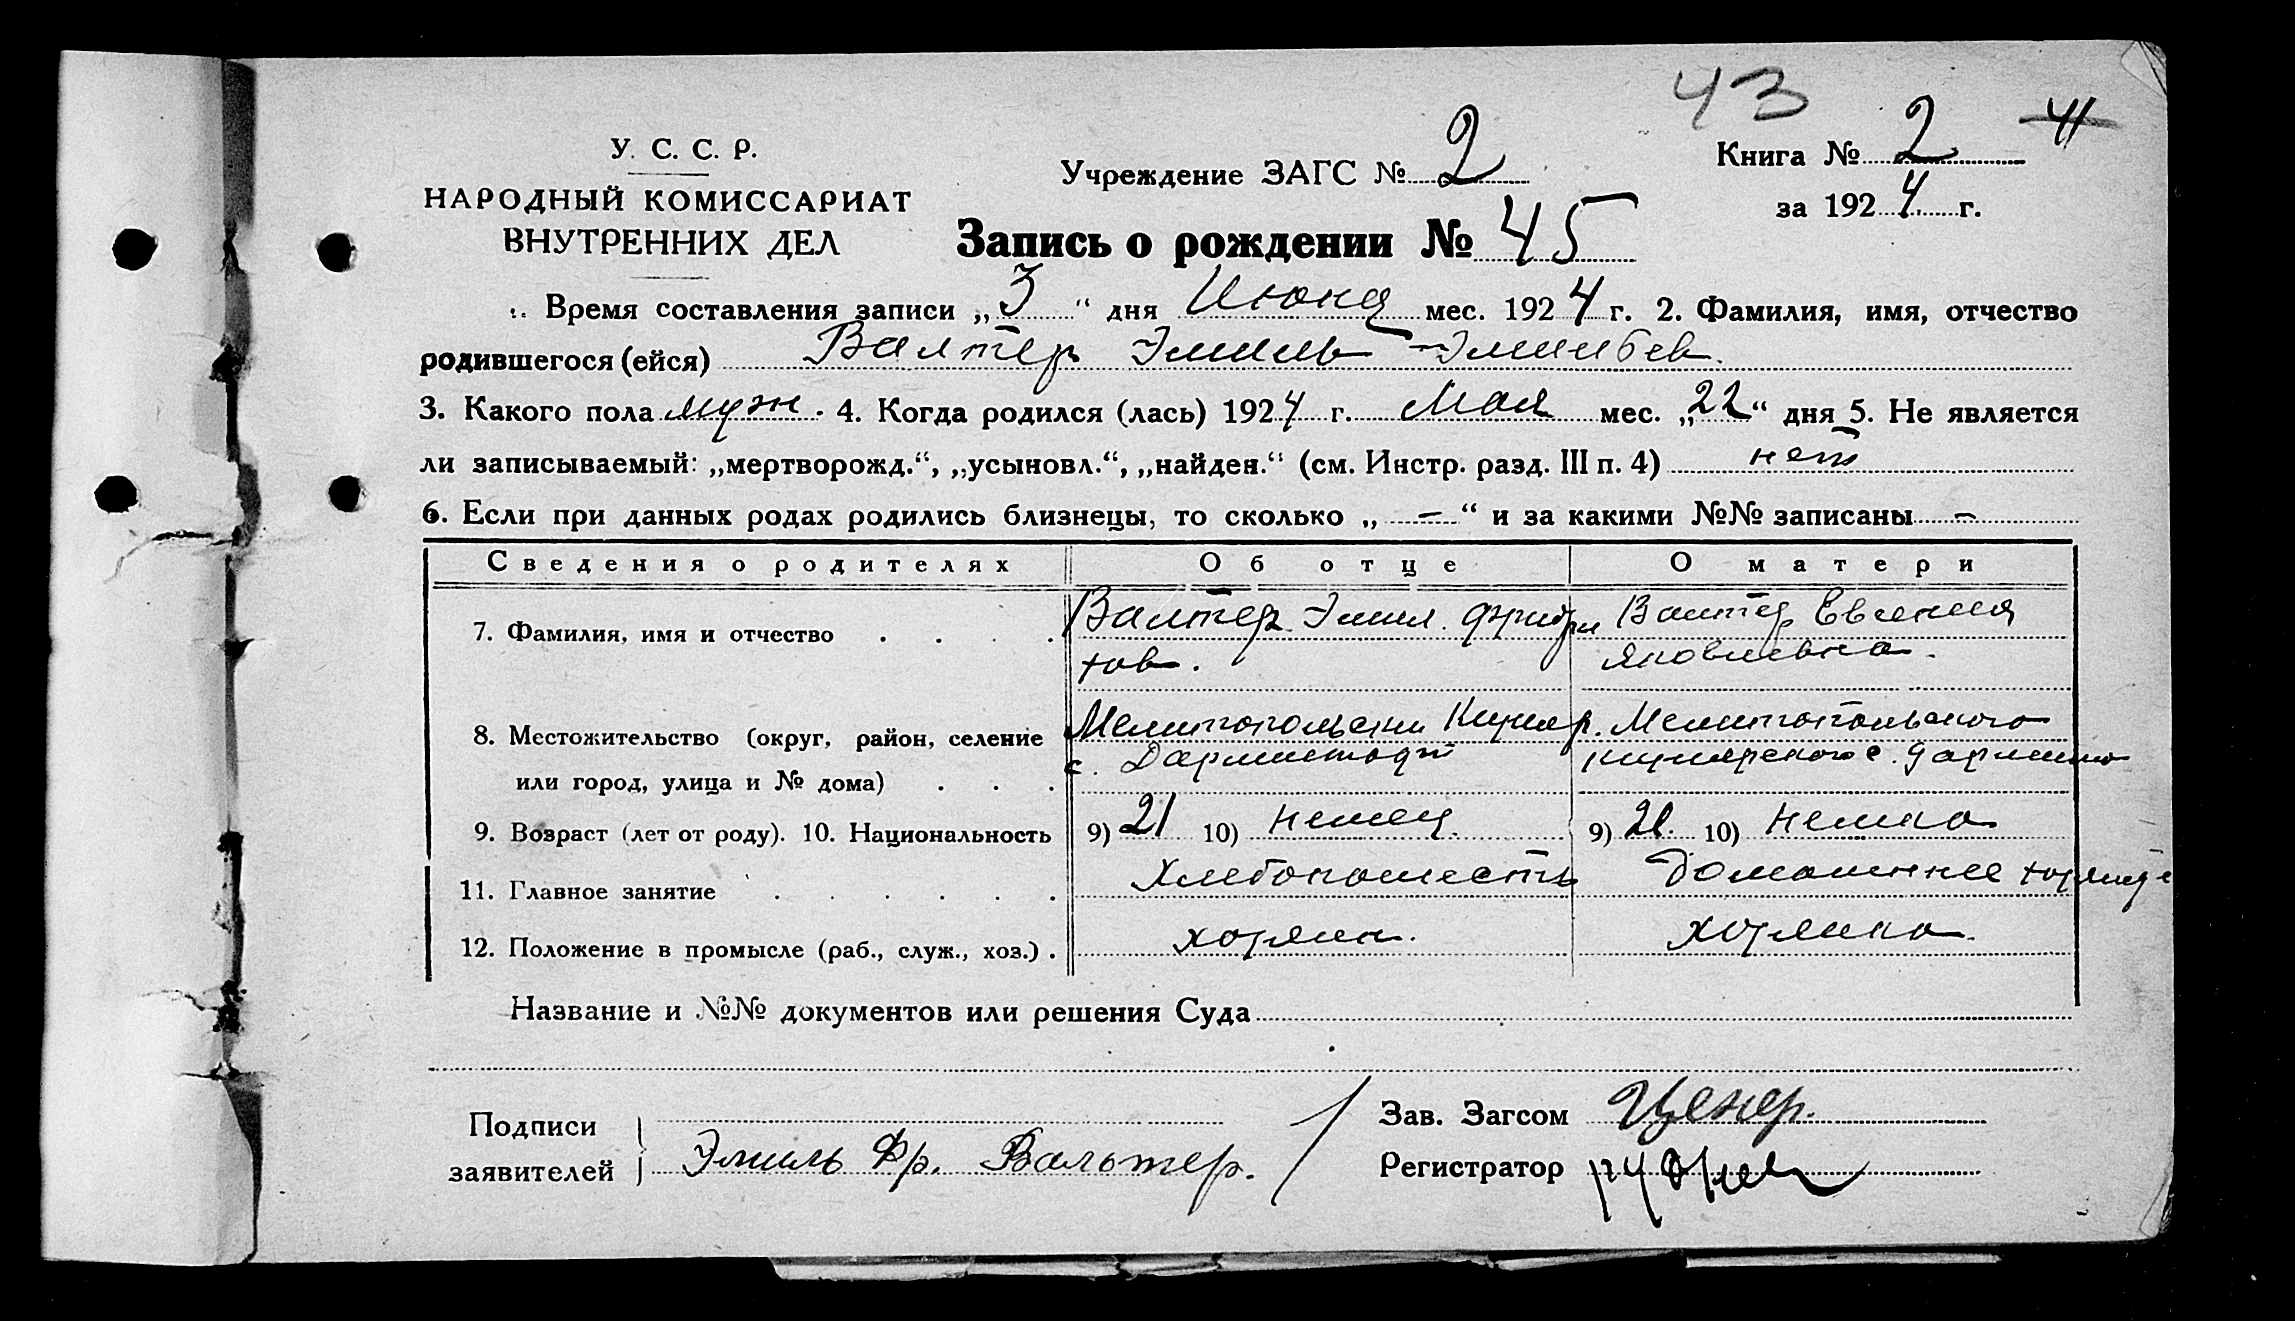 43
У. С. С. Р.
НАРОДНЫЙ КОМИССАРИАТ
ВНУТРЕННИХ ДЕЛ
Учреждение ЗАГС № 2
Книга № 2 41
за 1924 г.
Запись о рождении № 45
Время составления записи „3“ дня Июня мес. 1924 г. 2. Фамилия, имя, отчество
родившегося (ейся) Валтер Эмиль Эмильев.
3. Какого пола муж. 4. Когда родился (лась) 1924 г. Мая мес. „22“ дня 5. Не является
ли записываемый: „мертворожд.“, „усыновл.“, „найден.“ (см. Инстр. разд. III п. 4) нет
6. Если при данных родах родились близнецы, то сколько „ — “ и за какими №№ записаны —
Сведения о родителях Об отце О матери
7. Фамилия, имя и отчество Валтер Эмил. Фридри Валтер Евгения
хов. Яковлевна.
8. Местожительство (округ, район, селение Мелитопольски р. Мелитопольского
или город, улица и № дома) с. Дармштадт с. Дармшта
9. Возраст (лет от роду). 10. Национальность 9) 21 10) немец. 9) 21. 10) немка
11. Главное занятие хлебопашесть Домашнее
12. Положение в промысле (раб., служ., хоз.) хозяин. хозяика.
Название и №№ документов или решения Суда
Подписи
заявителей Эмиль Фр. Вальтер.
Зав. Загсом
Регистратор